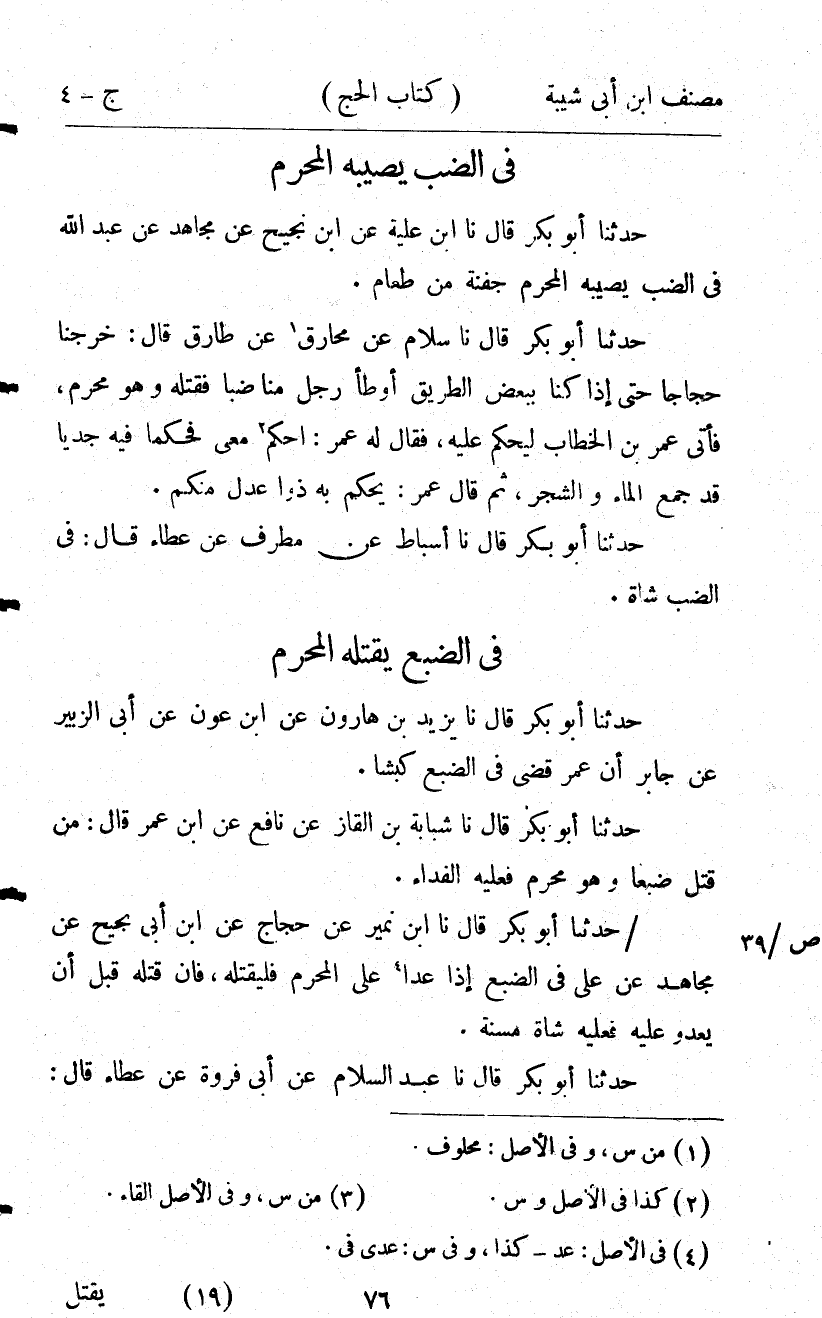 مصنف ابن أبى شيبة ( كتاب الحج ) ج – ٤
فى الضب يصيبه المحرم
حدثنا أبو بكر قال نا ابن علية عن ابن نجيح عن مجاهد عن عبد الله
فى الضب يصيبه المحرم جفنة من طعام .
حدثنا أبو بكر قال نا سلام عن محارق١ عن طارق قال : خرجنا
حجاجا حتى إذا كنا ببعض الطريق أوطأ رجل منا ضبا فقتله و هو محرم ،
فأتى عمر بن الخطاب ليحكم عليه ، فقال له عمر : احكم٢ معى فحكما فيه جديا
قد جمع الماء و الشجر ، ثم قال عمر : يحكم به ذوا عدل منكم .
حدثنا أبو بكر قال نا أسباط عن مطرف عن عطاء قال : فى
الضب شاة .
فى الضبع يقتله المحرم
حدثنا أبو بكر قال نا يزيد بن هارون عن ابن عون عن أبى الزبير
عن جابر أن عمر قضى فى الضبع كبشا .
حدثنا أبو بكر قال نا شبابة بن القاز عن نافع عن ابن عمر قال : من
قتل ضبعا و هو محرم فعليه الفداء .
/ حدثنا أبو بكر قال نا ابن نمير عن حجاج عن ابن أبى نجيح عن
ص / ٣٩
مجاهد عن على فى الضبع إذا عدا٤ على المحرم فليقتله ، فان قتله قبل أن
يعدو عليه فعليه شاة مسنة .
حدثنا أبو بكر قال نا عبد السلام عن أبى فروة عن عطاء قال :
(١) من س ، و فى الأصل : محلوف .
(٢) كذا فى الأصل و س . (٣) من س ، و فى الأصل القاء .
(٤) فى الأصل : عد – كذا ، و فى س : عدى فى .
٧٦ (١٩) يقتل